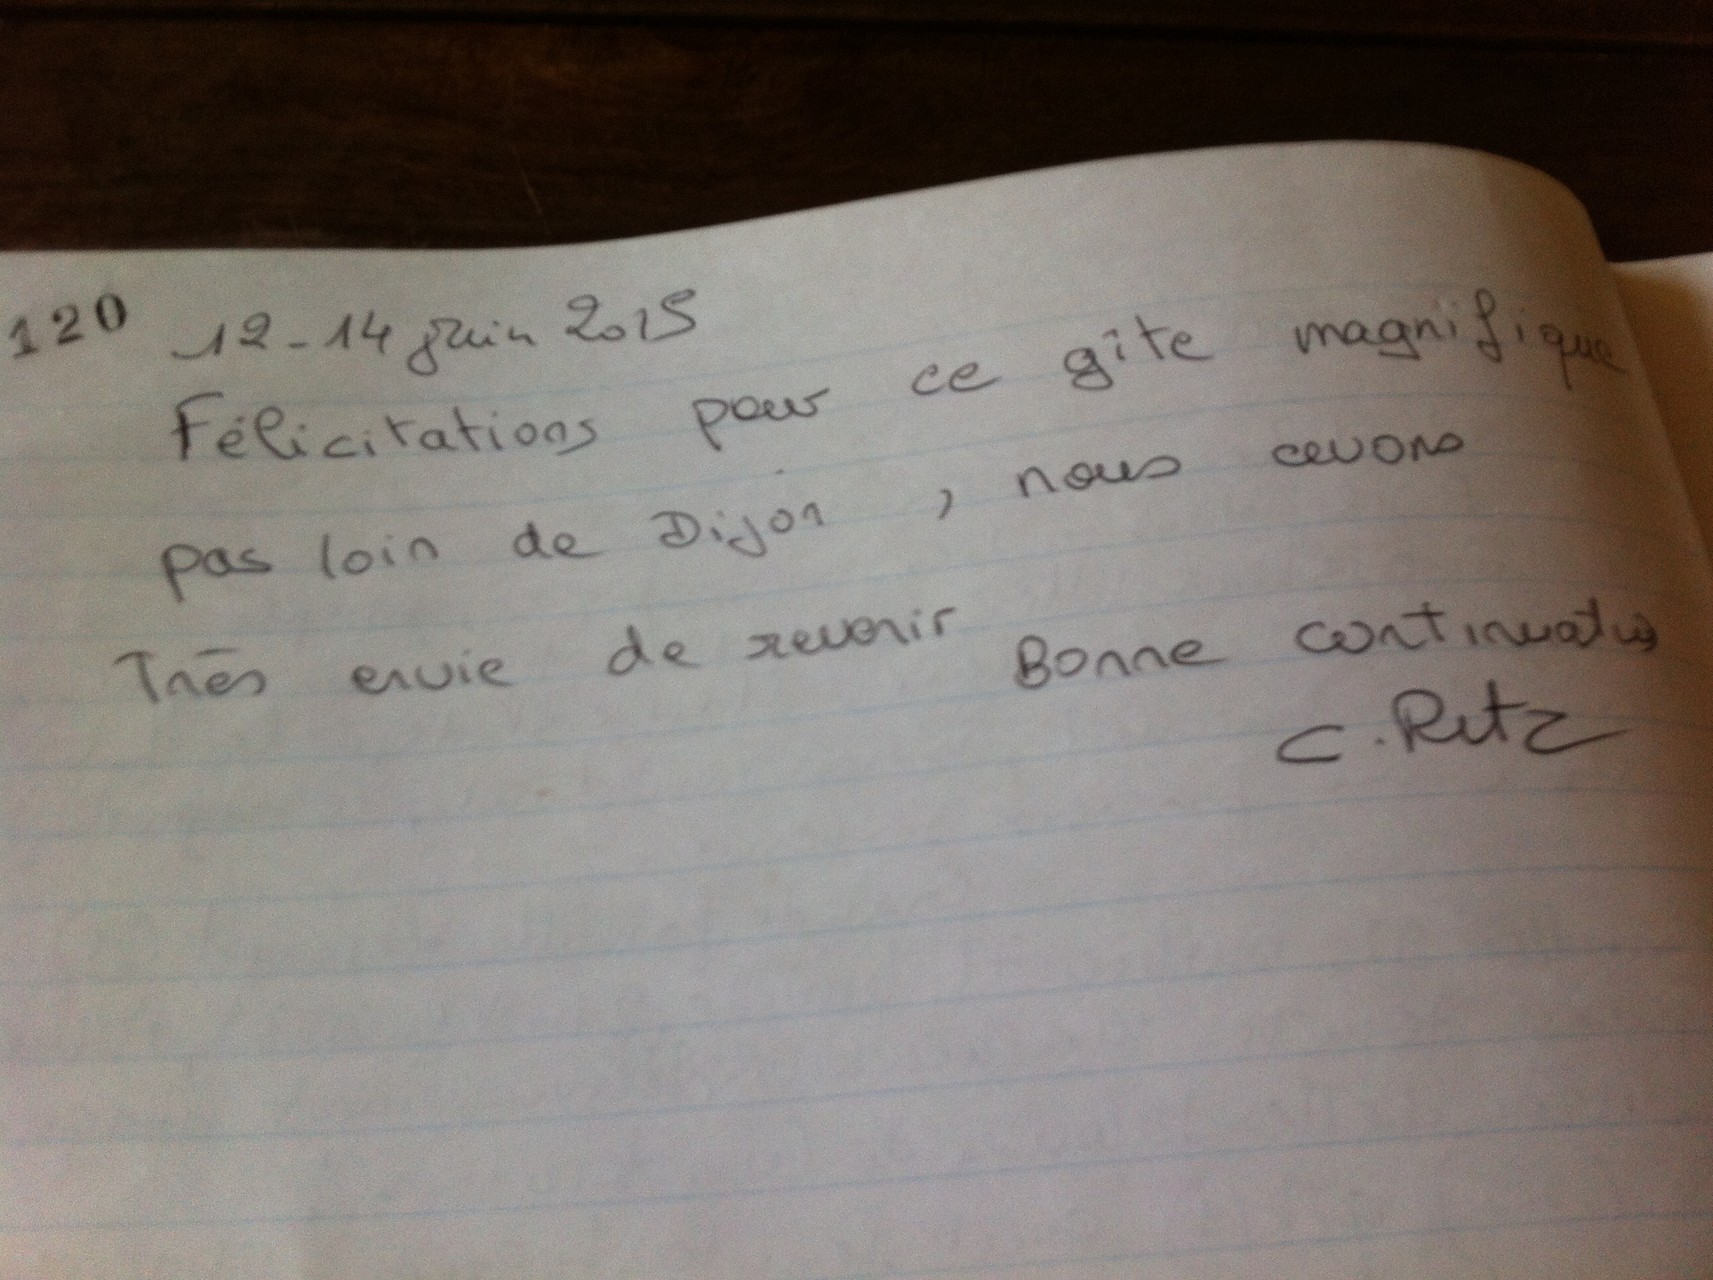 120 12-14 juin 2015
Félicitations pour ce gîte magnifique
pas loin de Dijon, nous avons
Très envie de revenir Bonne continuation
C. Ritz